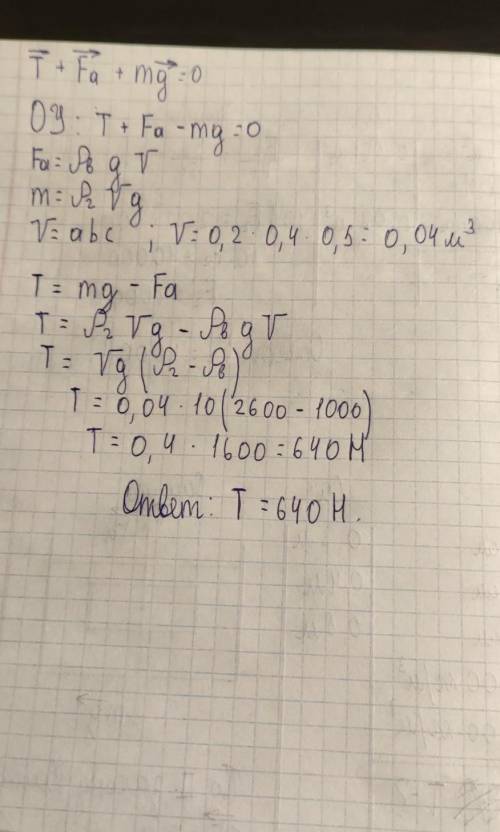 T⃗ + F⃗a + mg⃗ = 0
ОУ: T + Fa - mg = 0
Fa = ρв g V
m = ρг V g
V = abc ; V = 0,2 · 0,4 · 0,5 = 0,04 м³
T = mg - Fa
T = ρг Vg - ρв g V
T = Vg (ρг - ρв)
T = 0,04 · 10 (2600 - 1000)
T = 0,4 · 1600 = 640 Н
Ответ: T = 640 Н.